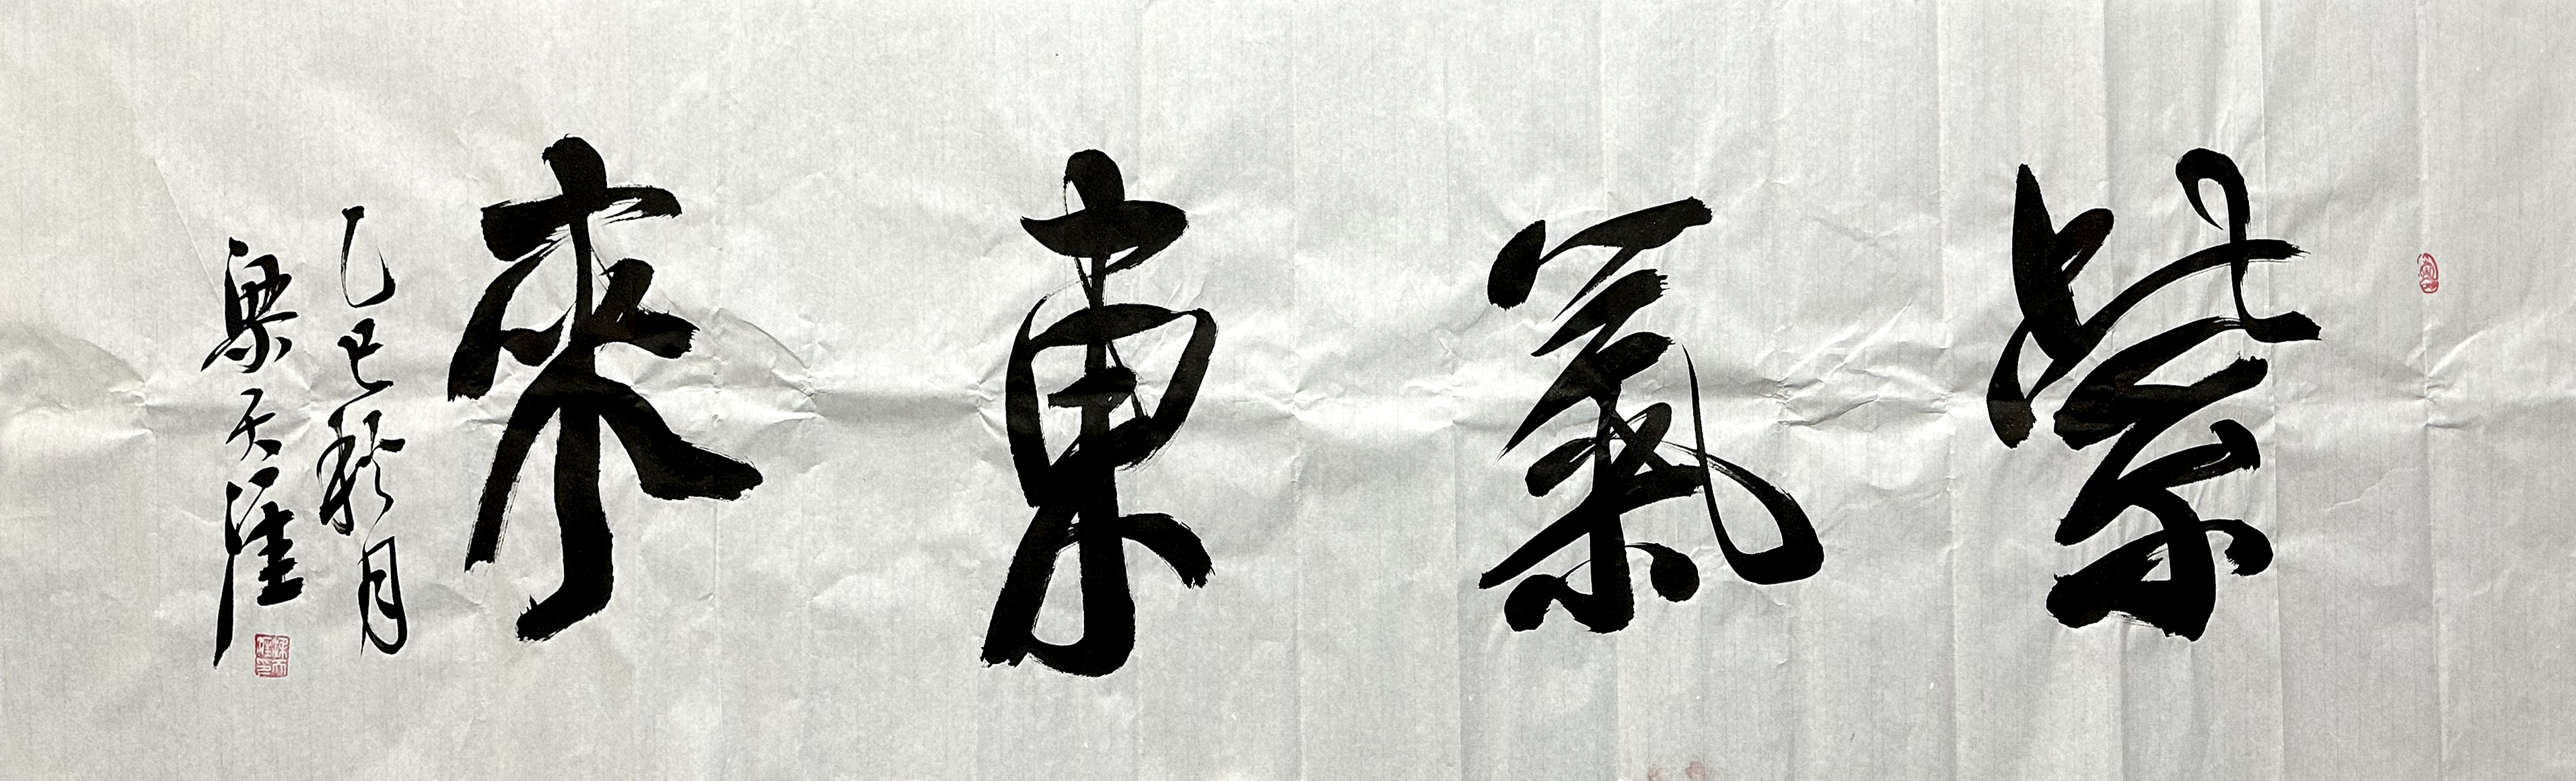 紫氣東來
乙巳秋月
梁天淮